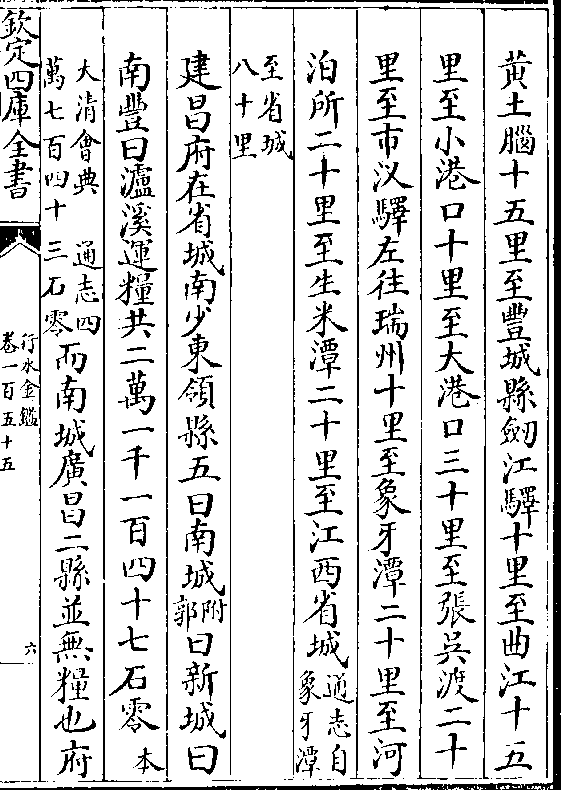 黄土腦十五里至豐城縣劒江驛十里至曲江十五
里至小港口十里至大港口三十里至張吳渡二十
里至市汊驛左往瑞州十里至象牙潭二十里至河
泊所二十里至生米潭二十里至江西省城通志自象牙潭
至省城八十里
建昌府在省城南少東領縣五曰南城附郭曰新城曰
南豐曰瀘溪運糧共二萬一千一百四十七石零本
大清會典通志四萬七百四十三石零而南城廣昌二縣並無糧也府
欽定四庫全書
行水金鑑
卷一百五十五
六